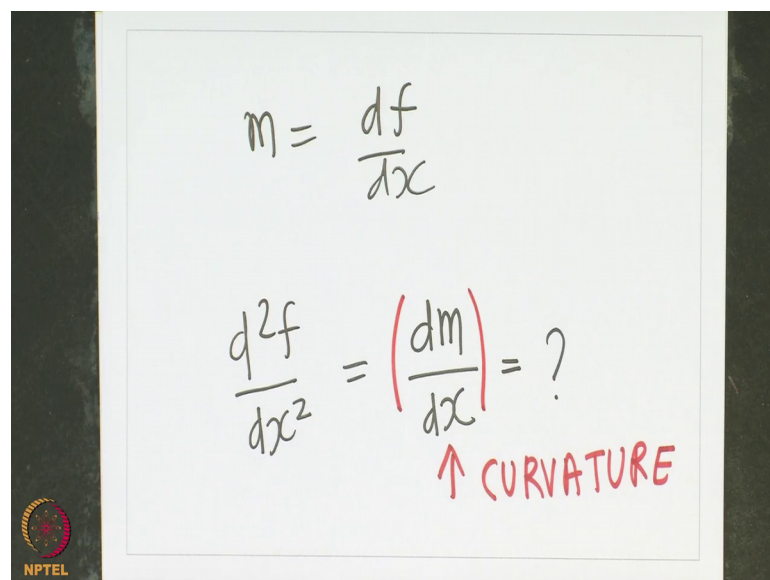 m = df/dx
d²f/dx² = (dm/dx) = ?
↑ CURVATURE
NPTEL